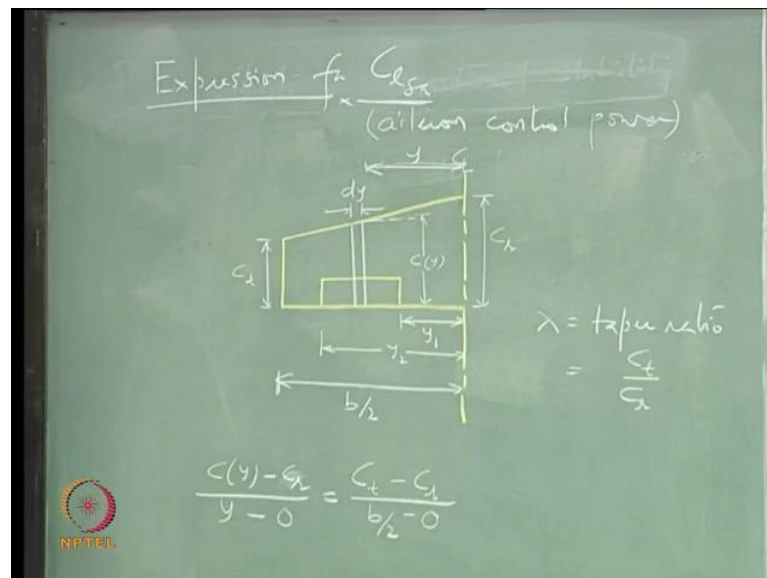 Expression for C_{l_{δa}}
(aileron control power)
y
C_L
dy
C_t
C(y)
C_r
y_1
y_2
b/2
λ = taper ratio
= C_t / C_r
(C(y) - C_r) / (y - 0) = (C_t - C_r) / (b/2 - 0)
NPTEL